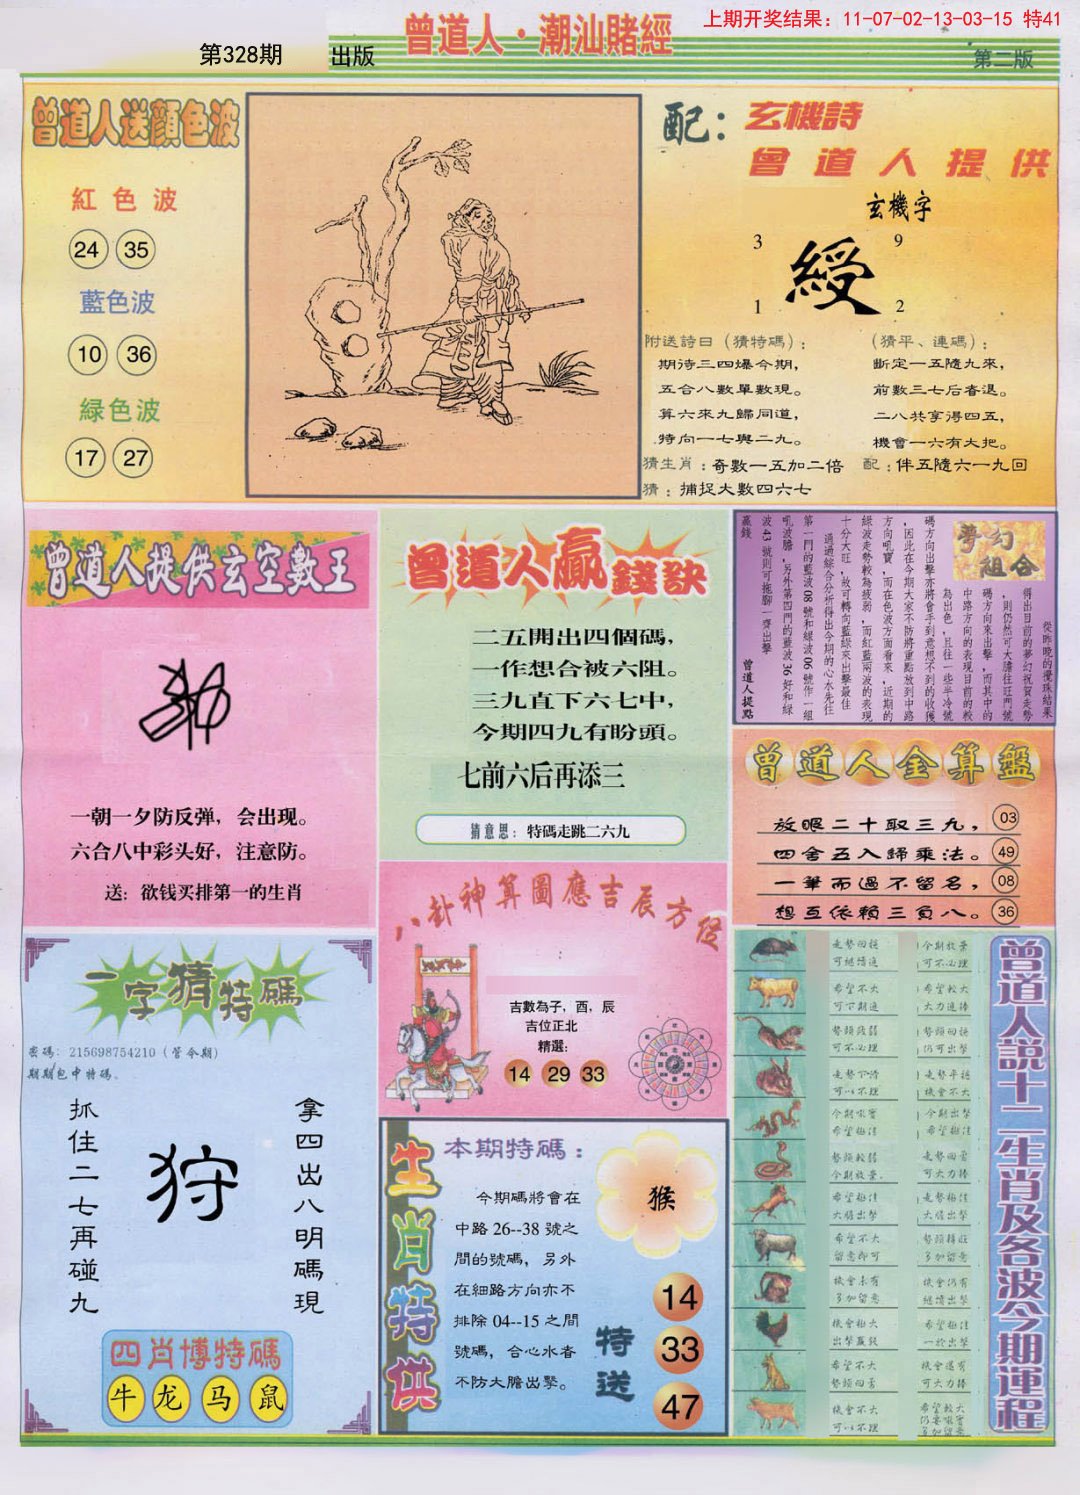 上期开奖结果：11-07-02-13-03-15 特41
曾道人·潮汕賭經
第328期
出版
第二版
曾道人送顏色波
紅色波
24 35
藍色波
10 36
緑色波
17 27
配：玄機詩
曾道人提供
玄機字
3 9
綬
1 2
附送詩曰（猜特碼）：
期待三四爆今期，
五合八數單數現。
算六來九歸同道，
特向一七與二九。
（猜平、連碼）：
斷定一五隨九來，
前數三七后者退。
二八共享得四五，
機會一六有大把。
猜生肖：奇數一五加二倍
配：伴五隨六一九回
猜：捕捉大數四六七
曾道人提供玄空數王
一朝一夕防反弹，会出现。
六合八中彩头好，注意防。
送：欲钱买排第一的生肖
曾道人贏錢訣
二五開出四個碼，
一作想合被六阻。
三九直下六七中，
今期四九有盼頭。
七前六后再添三
猜意思：特碼走跳二六九
夢幻組合
從昨晚的攪珠結果
得出目前的夢幻祝賀走勢
，則仍然可大膽往旺門號
碼方向來出擊，而其中的
中路方向的表現目前的較
為出色，且往一些半冷號
碼方向出擊亦將會手到意想不到的收獲
，因此在今期大家不防將重點放到中路
方向吼寶，而在色波方面看來，近期的
綠波走勢較為疲弱，而紅藍兩波的表現
十分大旺，故可轉向藍綠來出擊最佳
通過綜合分析得出今期的心水先往
第一門的藍波08號和綠波06號作一組
吼波膽，另外第四門的藍波36好和綠
波43號則可拖腳一齊出擊
贏錢
曾道人提點
曾道人金算盤
放眼二十取三九，03
四舍五入歸乘法。49
一筆而過不留名，08
想互依賴三負八。36
八卦神算圖應吉辰方位
吉數為子，酉，辰
吉位正北
精選：
14 29 33
一字猜特碼
密碼：215698754210（管今期）
期期包中特碼、
抓住二七再碰九
狩
拿四出八明碼現
四肖博特碼
牛 龙 马 鼠
生肖特供
本期特碼：
今期碼將會在
中路26--38號之
間的號碼，另外
在細路方向亦不
排除04--15之間
號碼，合心水者
不防大膽出擊。
猴
特送
14
33
47
曾道人說十二生肖及各波今期運程
走勢回穩
可繼續追
今期放棄
可不必理
希望不大
可下期追
希望較大
大力追捧
勢頭疲弱
可不必理
勢頭回穩
仍可出擊
走勢下滑
可以不理
走勢平穩
機會不大
今期吼寶
希望極佳
今期出擊
希望極佳
勢頭較弱
今期放棄.
走勢回勇
可大力捧
希望極佳
大膽出擊
走勢極佳
大膽出擊
希望不大
留意即可
勢頭轉旺
多加留意
機會未有
多加留意
機會仍有
繼續出擊
機會極大
出擊贏錢
希望極佳
一於出擊
希望不大
勢頭回勇
機會還有
可大力捧
機會不大
可以不理
希望較大
仍要吼實
多加留意